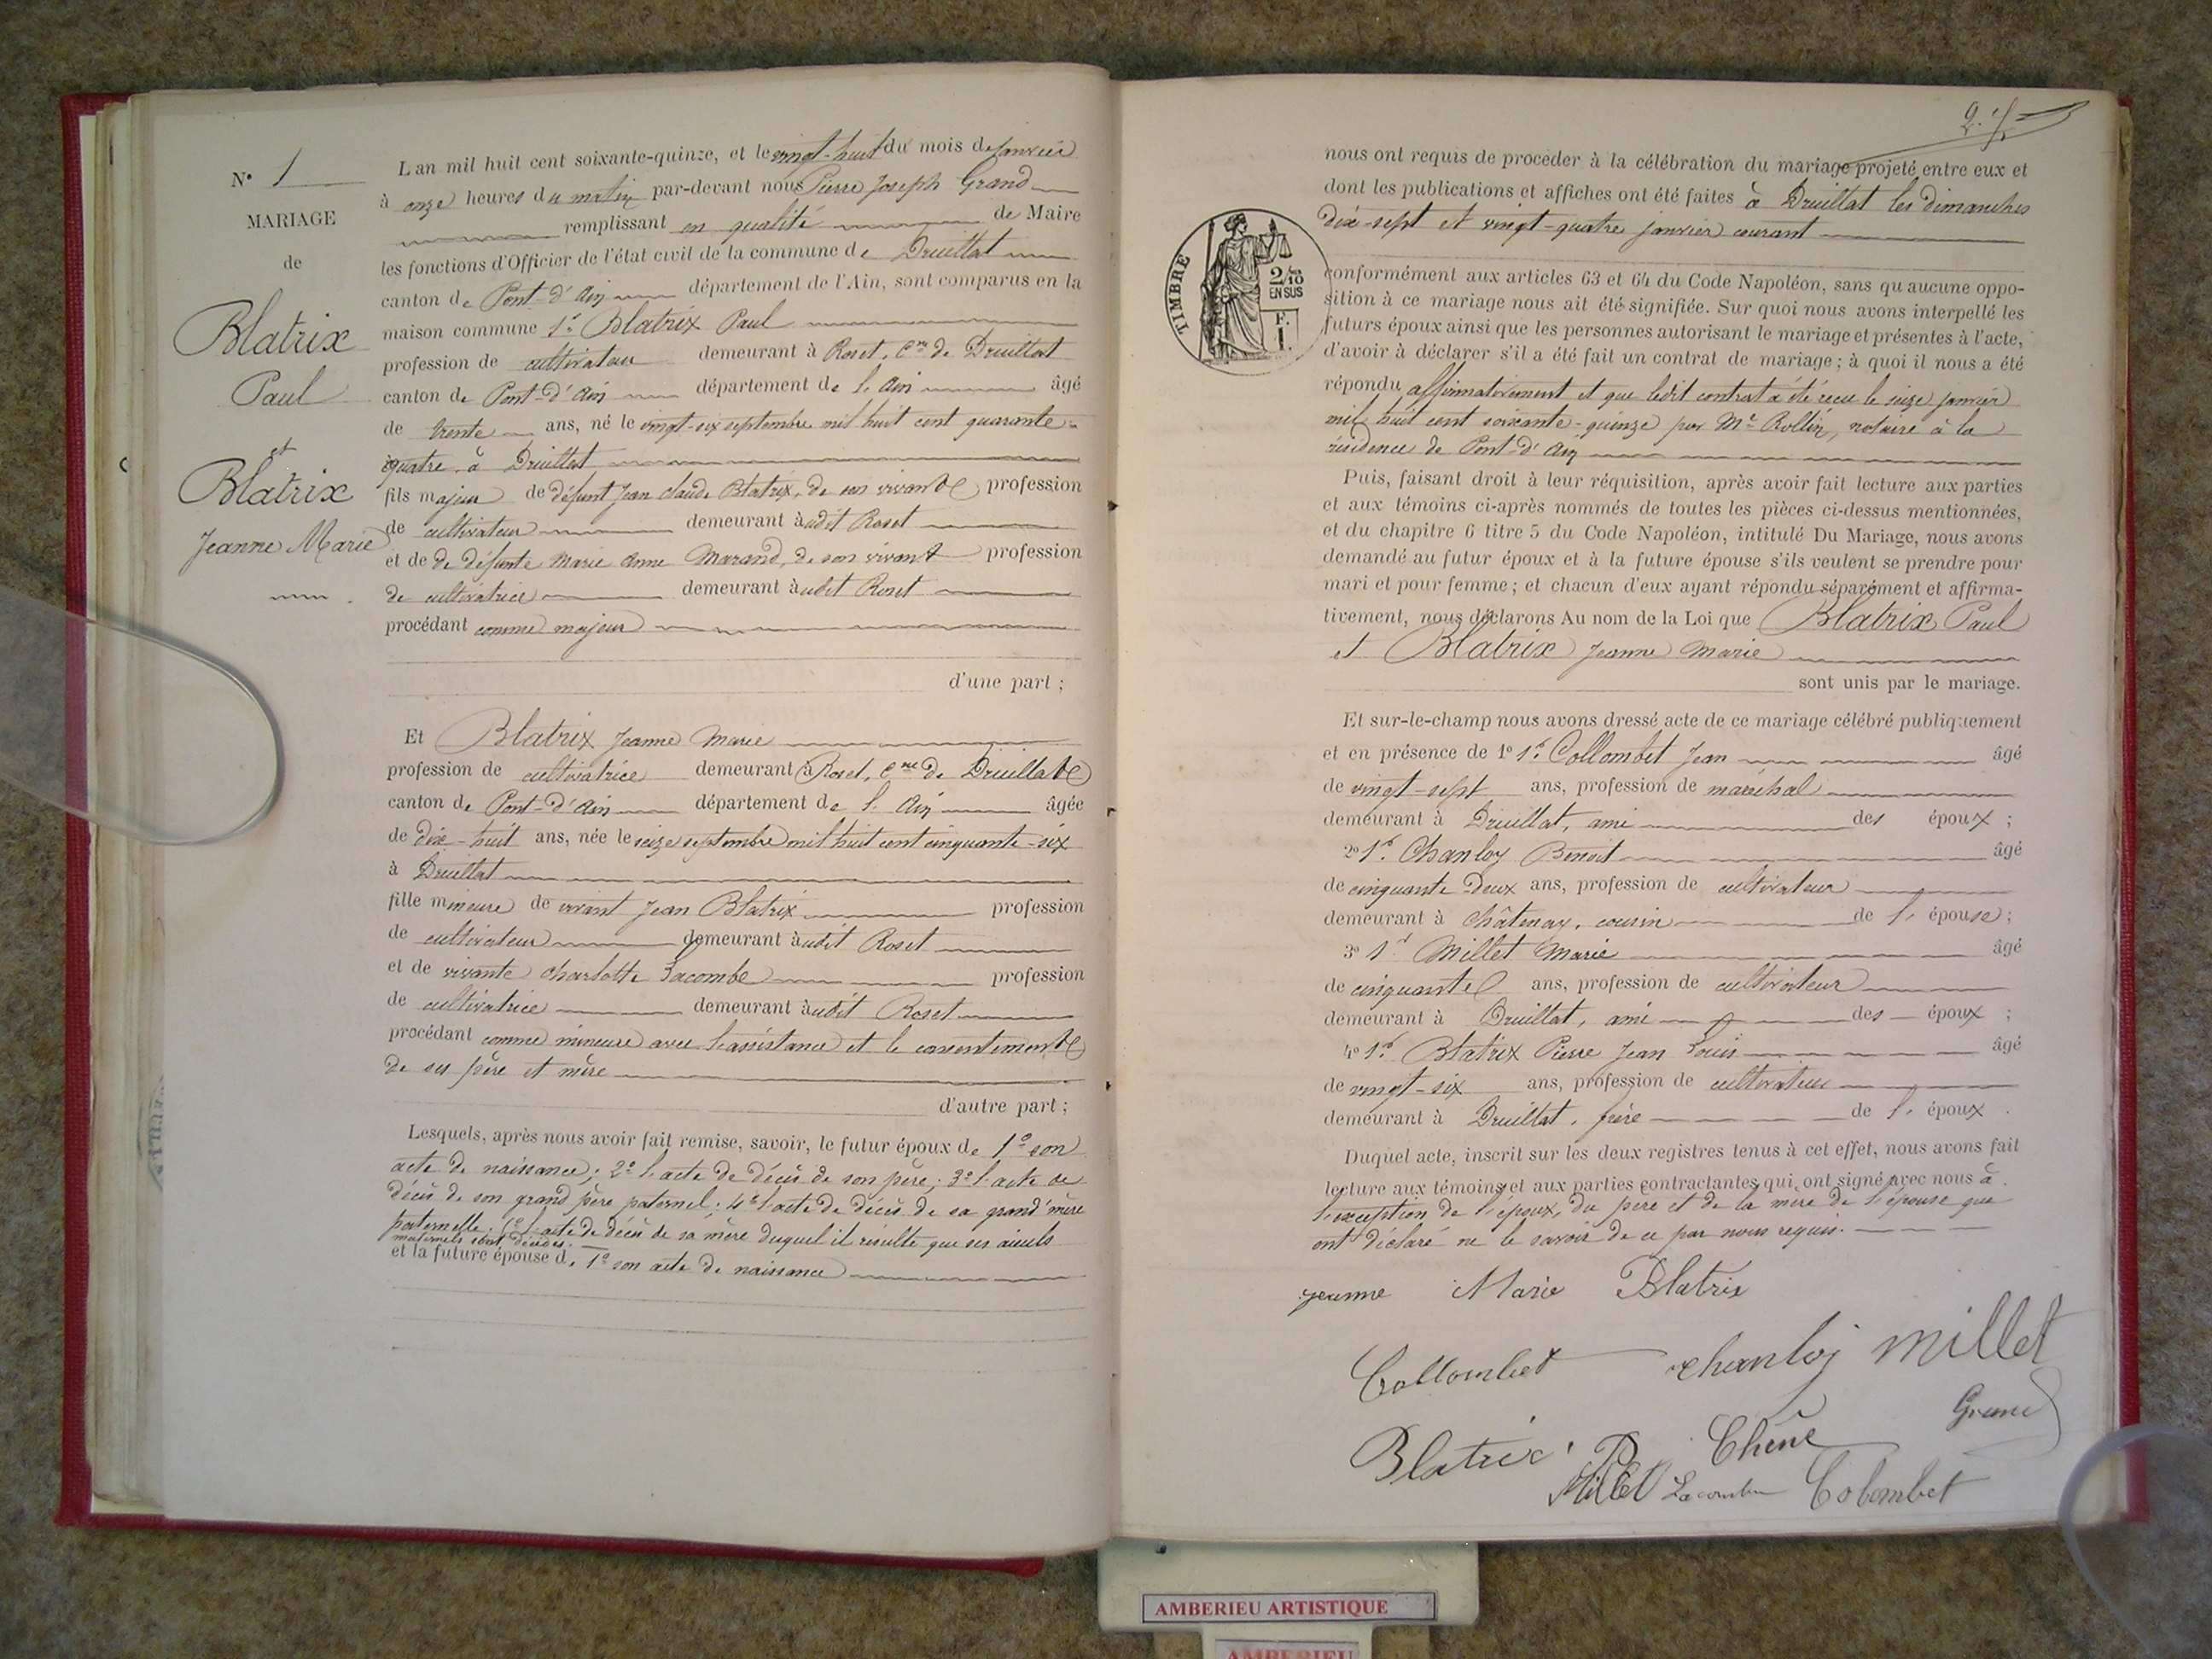 N° 1
MARIAGE
de
Blatrix
Paul
et
Blatrix
Jeanne Marie
L'an mil huit cent soixante-quinze, et le vingt-huit du mois de janvier
à onze heures du matin par-devant nous Pierre Joseph Grand
remplissant en qualité de Maire
les fonctions d'Officier de l'état civil de la commune de Druillat
canton de Pont-d'Ain département de l'Ain, sont comparus en la
maison commune 1° Blatrix Paul
profession de cultivateur demeurant à Roset, Cne de Druillat
canton de Pont-d'Ain département de l'Ain âgé
de trente ans, né le vingt-six septembre mil huit cent quarante-
quatre à Druillat
fils majeur de défunt Jean Claude Blatrix, de son vivant profession
de cultivateur demeurant àudit Roset
et de de défunte Marie Anne Marand, de son vivant profession
de cultivatrice demeurant àudit Roset
procédant comme majeur
d'une part ;
Et Blatrix Jeanne Marie
profession de cultivatrice demeurant à Roset, Cne de Druillat
canton de Pont-d'Ain département de l'Ain âgée
de dix-huit ans, née le seize septembre mil huit cent cinquante-six
à Druillat
fille mineure de vivant Jean Blatrix profession
de cultivateur demeurant àudit Roset
et de vivante Charlotte Lacombe profession
de cultivatrice demeurant àudit Roset
procédant comme mineure avec l'assistance et le consentement
de ses père et mère
d'autre part ;
Lesquels, après nous avoir fait remise, savoir, le futur époux de 1° son
acte de naissance ; 2° l'acte de décès de son père ; 3° l'acte de
décès de son grand père paternel ; 4° l'acte de décès de sa grand'mère
paternelle ; 5° l'acte de décès de sa mère duquel il résulte que ses aïeuls
maternels sont décédés.
et la future épouse de 1° son acte de naissance
2
nous ont requis de procéder à la célébration du mariage projeté entre eux et
dont les publications et affiches ont été faites à Druillat les dimanches
dix-sept et vingt-quatre janvier courant
TIMBRE
2/10
EN SUS
F.
1.
conformément aux articles 63 et 64 du Code Napoléon, sans qu'aucune oppo-
sition à ce mariage nous ait été signifiée. Sur quoi nous avons interpellé les
futurs époux ainsi que les personnes autorisant le mariage et présentes à l'acte,
d'avoir à déclarer s'il a été fait un contrat de mariage ; à quoi il nous a été
répondu affirmativement et que ledit contrat a été reçu le seize janvier
mil huit cent soixante-quinze par Me Rollin, notaire à la
résidence de Pont-d'Ain
Puis, faisant droit à leur réquisition, après avoir fait lecture aux parties
et aux témoins ci-après nommés de toutes les pièces ci-dessus mentionnées,
et du chapitre 6 titre 5 du Code Napoléon, intitulé Du Mariage, nous avons
demandé au futur époux et à la future épouse s'ils veulent se prendre pour
mari et pour femme ; et chacun d'eux ayant répondu séparément et affirma-
tivement, nous déclarons Au nom de la Loi que Blatrix Paul
et Blatrix Jeanne Marie
sont unis par le mariage.
Et sur-le-champ nous avons dressé acte de ce mariage célébré publiquement
et en présence de 1° Sr Collombet Jean âgé
de vingt-sept ans, profession de maréchal
demeurant à Druillat, ami des époux ;
2° Sr Chanloy Benoit âgé
de cinquante-deux ans, profession de cultivateur
demeurant à Châtenay, cousin de l'épouse ;
3° Sr Millet Marie âgé
de cinquante ans, profession de cultivateur
demeurant à Druillat, ami des époux ;
4° Sr Blatrix Pierre Jean Louis âgé
de vingt-six ans, profession de cultivateur
demeurant à Druillat, frère de l'époux.
Duquel acte, inscrit sur les deux registres tenus à cet effet, nous avons fait
lecture aux témoins et aux parties contractantes qui ont signé avec nous à
l'exception de l'époux, du père et de la mère de l'épouse que
ont déclaré ne le savoir de ce par nous requis.
jeanne Marie Blatrix
Collombet chanloy Millet
Grand
Blatrix P Chêne
Millet Lacombe Colombet
AMBERIEU ARTISTIQUE
AMBERIEU